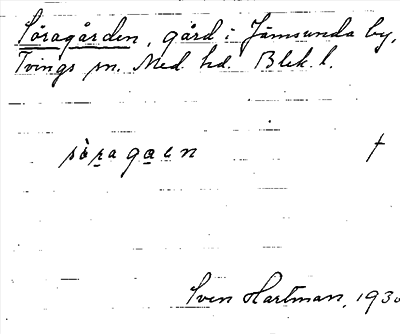 Söragården, gård i Jämsunda by,
Tvings sn. Med. hd. Blek. l.
sòragaen †
Sven Hartman, 1930